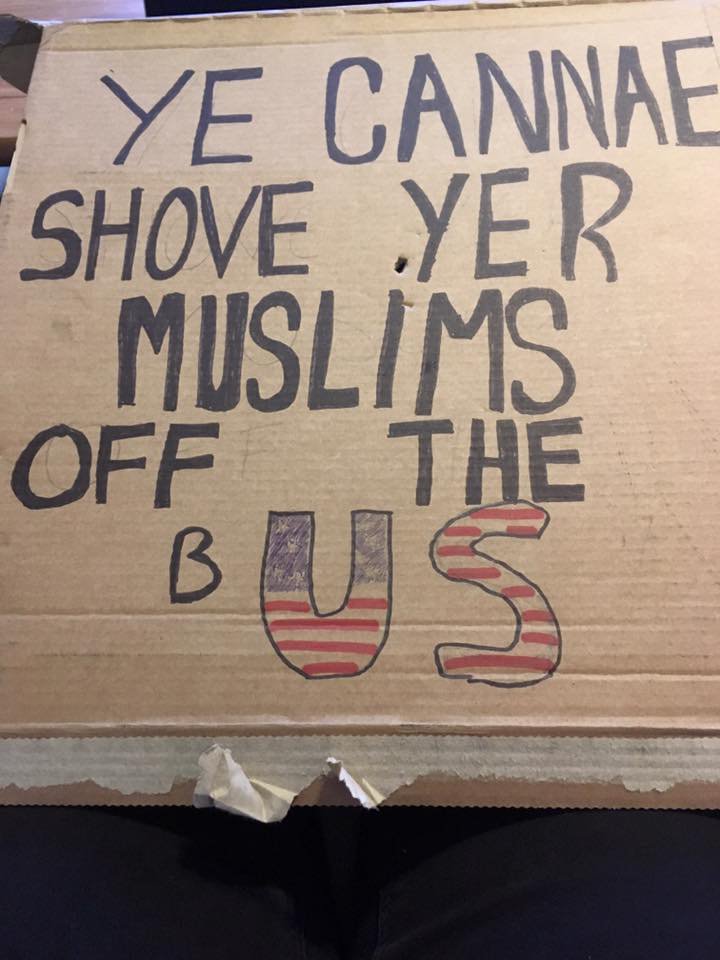 YE CANNAE
SHOVE YER
MUSLIMS
OFF THE
BUS